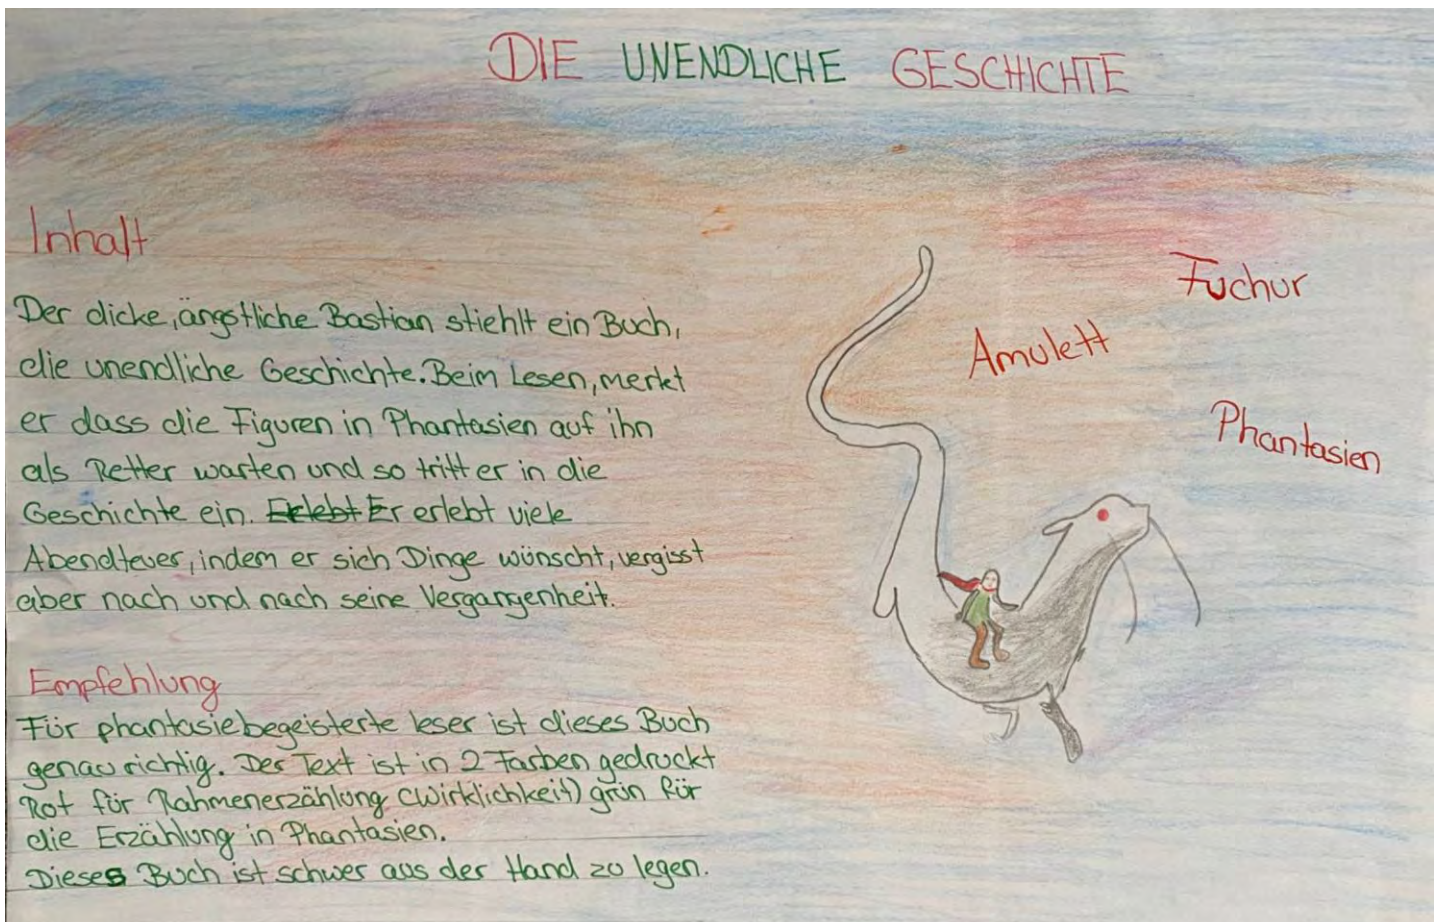 DIE UNENDLICHE GESCHICHTE
Inhalt
Der dicke, ängstliche Bastian stiehlt ein Buch,
die unendliche Geschichte. Beim Lesen, merkt
er dass die Figuren in Phantasien auf ihn
als Retter warten und so tritt er in die
Geschichte ein. Erlebt Er erlebt viele
Abendteuer, indem er sich Dinge wünscht, vergisst
aber nach und nach seine Vergangenheit.
Empfehlung
Für phantasiebegeisterte leser ist dieses Buch
genau richtig. Der Text ist in 2 Farben gedruckt
Rot für Rahmenerzählung (Wirklichkeit) grün für
die Erzählung in Phantasien.
Dieses Buch ist schwer aus der Hand zu legen.
Fuchur
Amulett
Phantasien